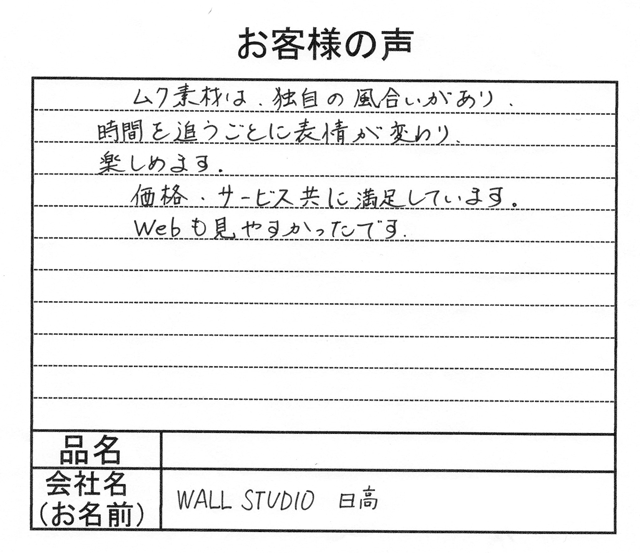 お客様の声
ムク素材は、独自の風合いがあり、
時間を追うごとに表情が変わり、
楽しめます。
価格・サービス共に満足しています。
Webも見やすかったです.
品名
会社名
(お名前)
WALL STUDIO 日高